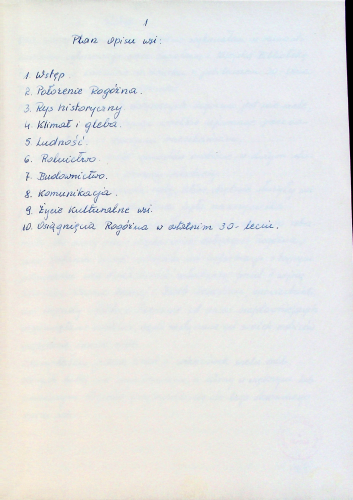 1
Plan opisu wsi:
1. Wstęp.
2. Położenie Rogóźna.
3. Rys historyczny
4. Klimat i gleba.
5. Ludność.
6. Rolnictwo.
7. Budownictwo.
8. Komunikacja.
9. Życie kulturalne wsi.
10. Osiągnięcia Rogóźna w ostatnim 30-leciu.